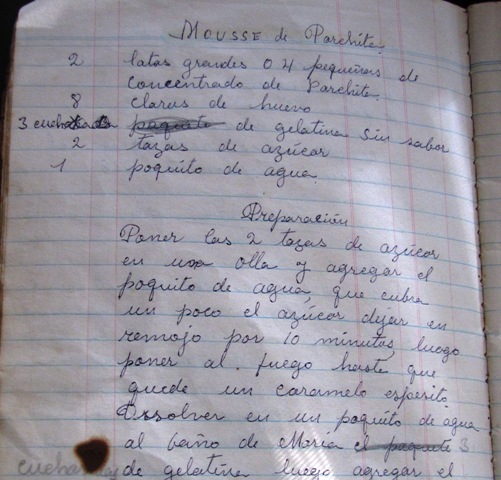 Mousse de Parchita
2 latas grandes o 4 pequeñas de
concentrado de Parchita.
8 claras de huevo
3 cucharadas paquete de gelatina sin sabor
2 tazas de azúcar
1 poquito de agua
Preparación
Poner las 2 tazas de azúcar
en una olla y agregar el
poquito de agua, que cubra
un poco el azúcar dejar en
remojo por 10 minutos, luego
poner al fuego hasta que
quede un caramelo espesito.
Disolver en un poquito de agua
al baño de María el paquete 3
cucharadas de gelatina luego agregar el